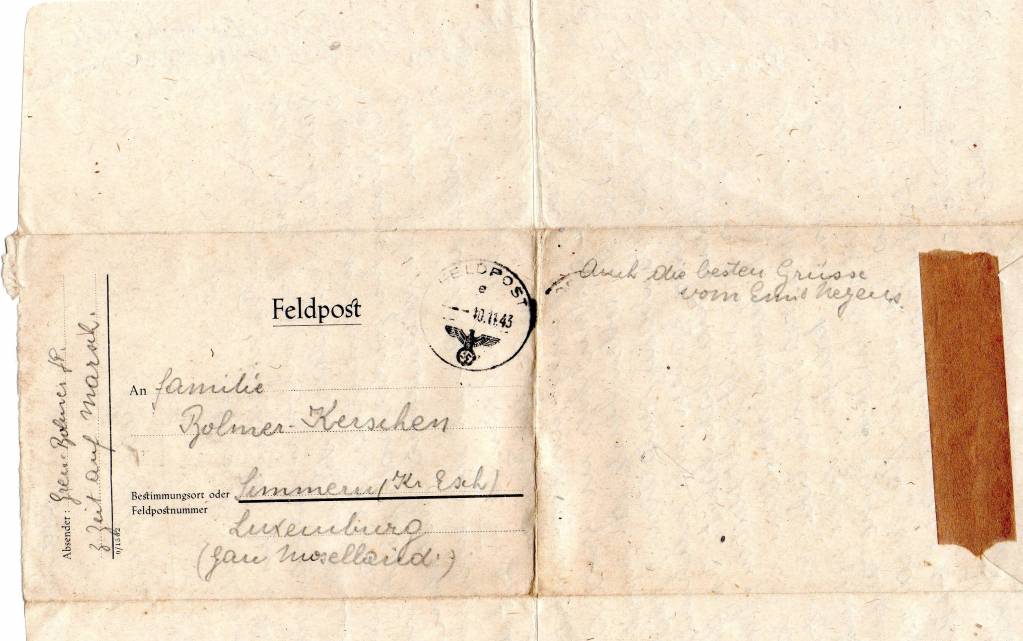 Feldpost
FELDPOST
e
10.11.43
An familie
Bolmer-Kerschen
Bestimmungsort oder
Feldpostnummer
Simmern (Kr Esch)
Luxemburg
(Gau Moselland.)
Absender: Gren. Bolmer JP.
z Zeit auf marsch.
Auch die besten Grüsse
vom Emil